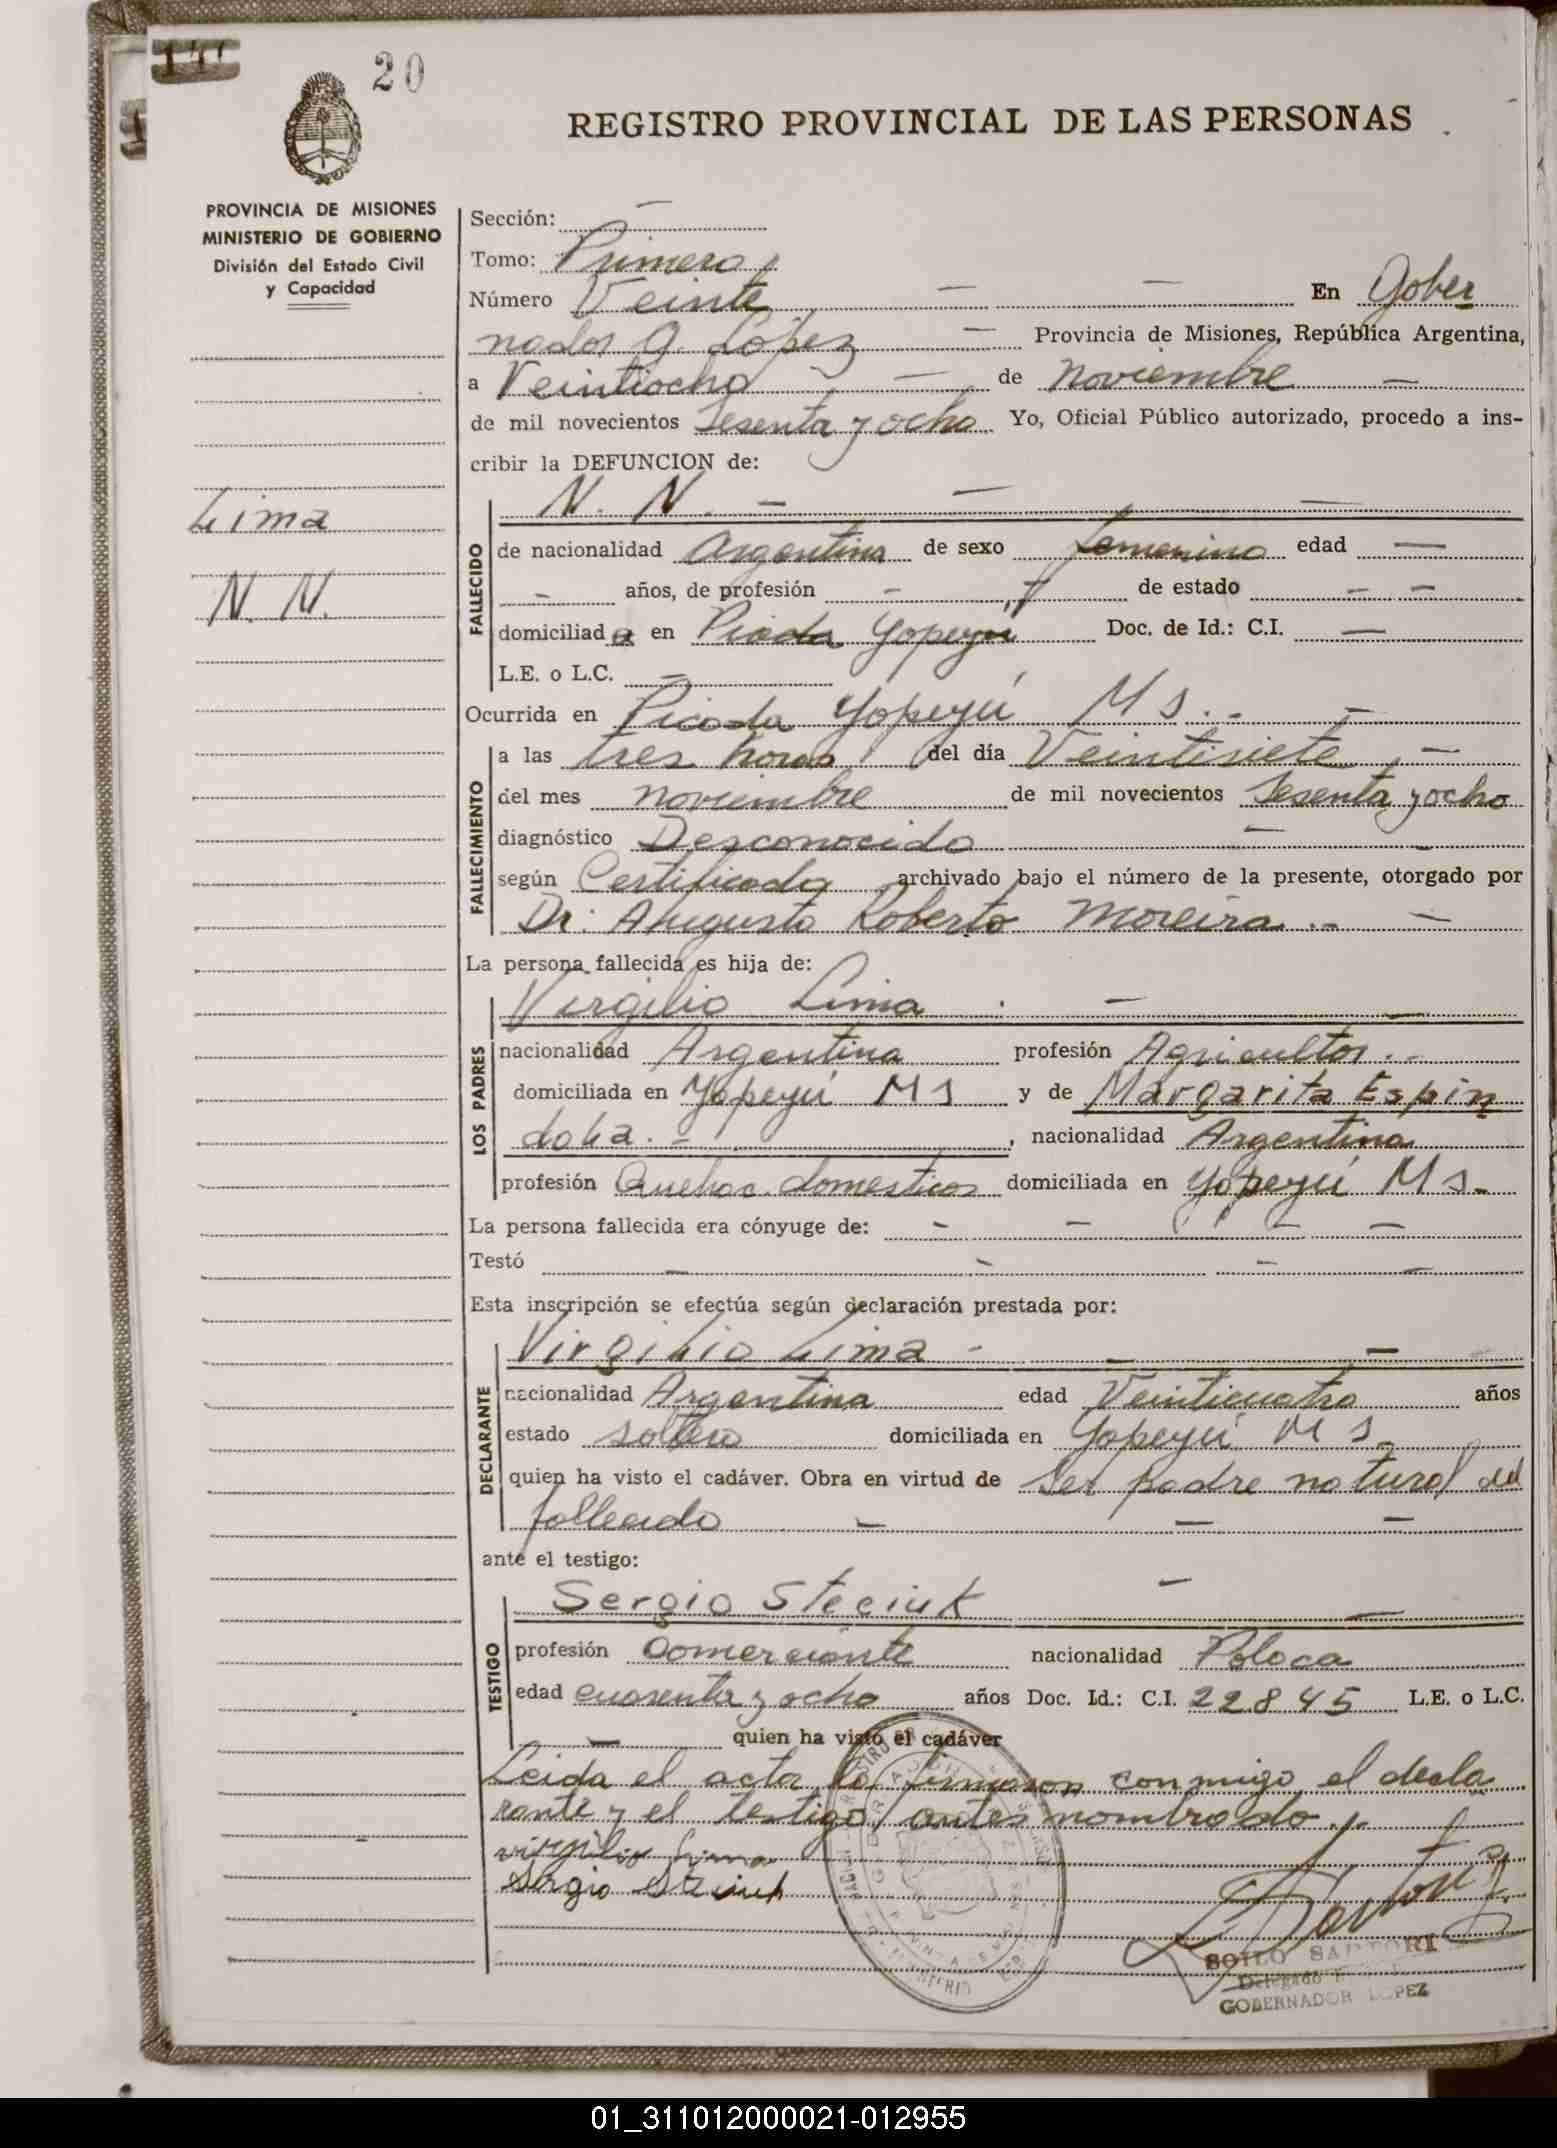 20
REGISTRO PROVINCIAL DE LAS PERSONAS
PROVINCIA DE MISIONES
MINISTERIO DE GOBIERNO
División del Estado Civil
y Capacidad
Lima
N. N.
Sección: —
Tomo: Primero
Número Veinte — — En Gober
nador G. López — Provincia de Misiones, República Argentina,
a Veintiocho — de noviembre —
de mil novecientos sesenta y ocho Yo, Oficial Público autorizado, procedo a ins-
cribir la DEFUNCION de:
N. N. — — —
FALLECIDO
de nacionalidad Argentina de sexo femenino edad —
— años, de profesión — , de estado — —
domiciliada en Picada Yapeyú Doc. de Id.: C.I. —
L.E. o L.C. —
Ocurrida en Picada Yapeyú Ms. - —
FALLECIMIENTO
a las tres horas del día Veintisiete —
del mes noviembre de mil novecientos sesenta y ocho
diagnóstico Desconocido — -
según Certificado archivado bajo el número de la presente, otorgado por
Dr: Augusto Roberto Moreira .- —
La persona fallecida es hija de:
LOS PADRES
Virgilio Lima . — —
nacionalidad Argentina profesión Agricultor. -
domiciliada en Yapeyú Ms y de Margarita Espin
dola. - , nacionalidad Argentina
profesión Quehac. domesticos domiciliada en Yapeyú Ms-
La persona fallecida era cónyuge de: - — — —
Testó — - — —
Esta inscripción se efectúa según declaración prestada por:
DECLARANTE
Virgilio Lima - — —
nacionalidad Argentina edad Veinticuatro años
estado soltero domiciliada en Yapeyú Ms
quien ha visto el cadáver. Obra en virtud de ser padre natural del
fallecido — — —
ante el testigo:
TESTIGO
Sergio Steciuk — —
profesión Comerciante nacionalidad Polaca
edad cuarenta y ocho años Doc. Id.: C.I. 22845 L.E. o L.C.
— quien ha visto el cadáver
Leida el acta la firmaron conmigo el decla
rante y el testigo antes nombrado.-
virgilio Lima
Sergio Steciuk
GOBERNADOR LOPEZ
01_311012000021-012955